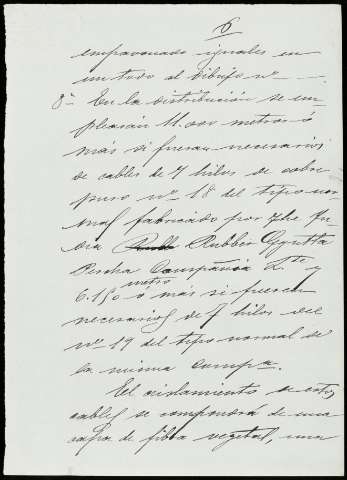 16
empavonado iguales en
un todo al dibujo nº
8º En la distribución se em-
plearán 11.000 metros ó
más si fueran necesarios
de cables de 7 hilos de cobre
puro nº 18 del tipo nor-
mal fabricado por The In-
dia Rubber Gutta
Percha Compañia L.te y
6.150 metros ó más si fueren
necesarios de 7 hilos del
nº 19 del tipo normal de
la misma compª.
El aislamiento de estos
cables se compondrá de una
capa de fibra vegetal, una